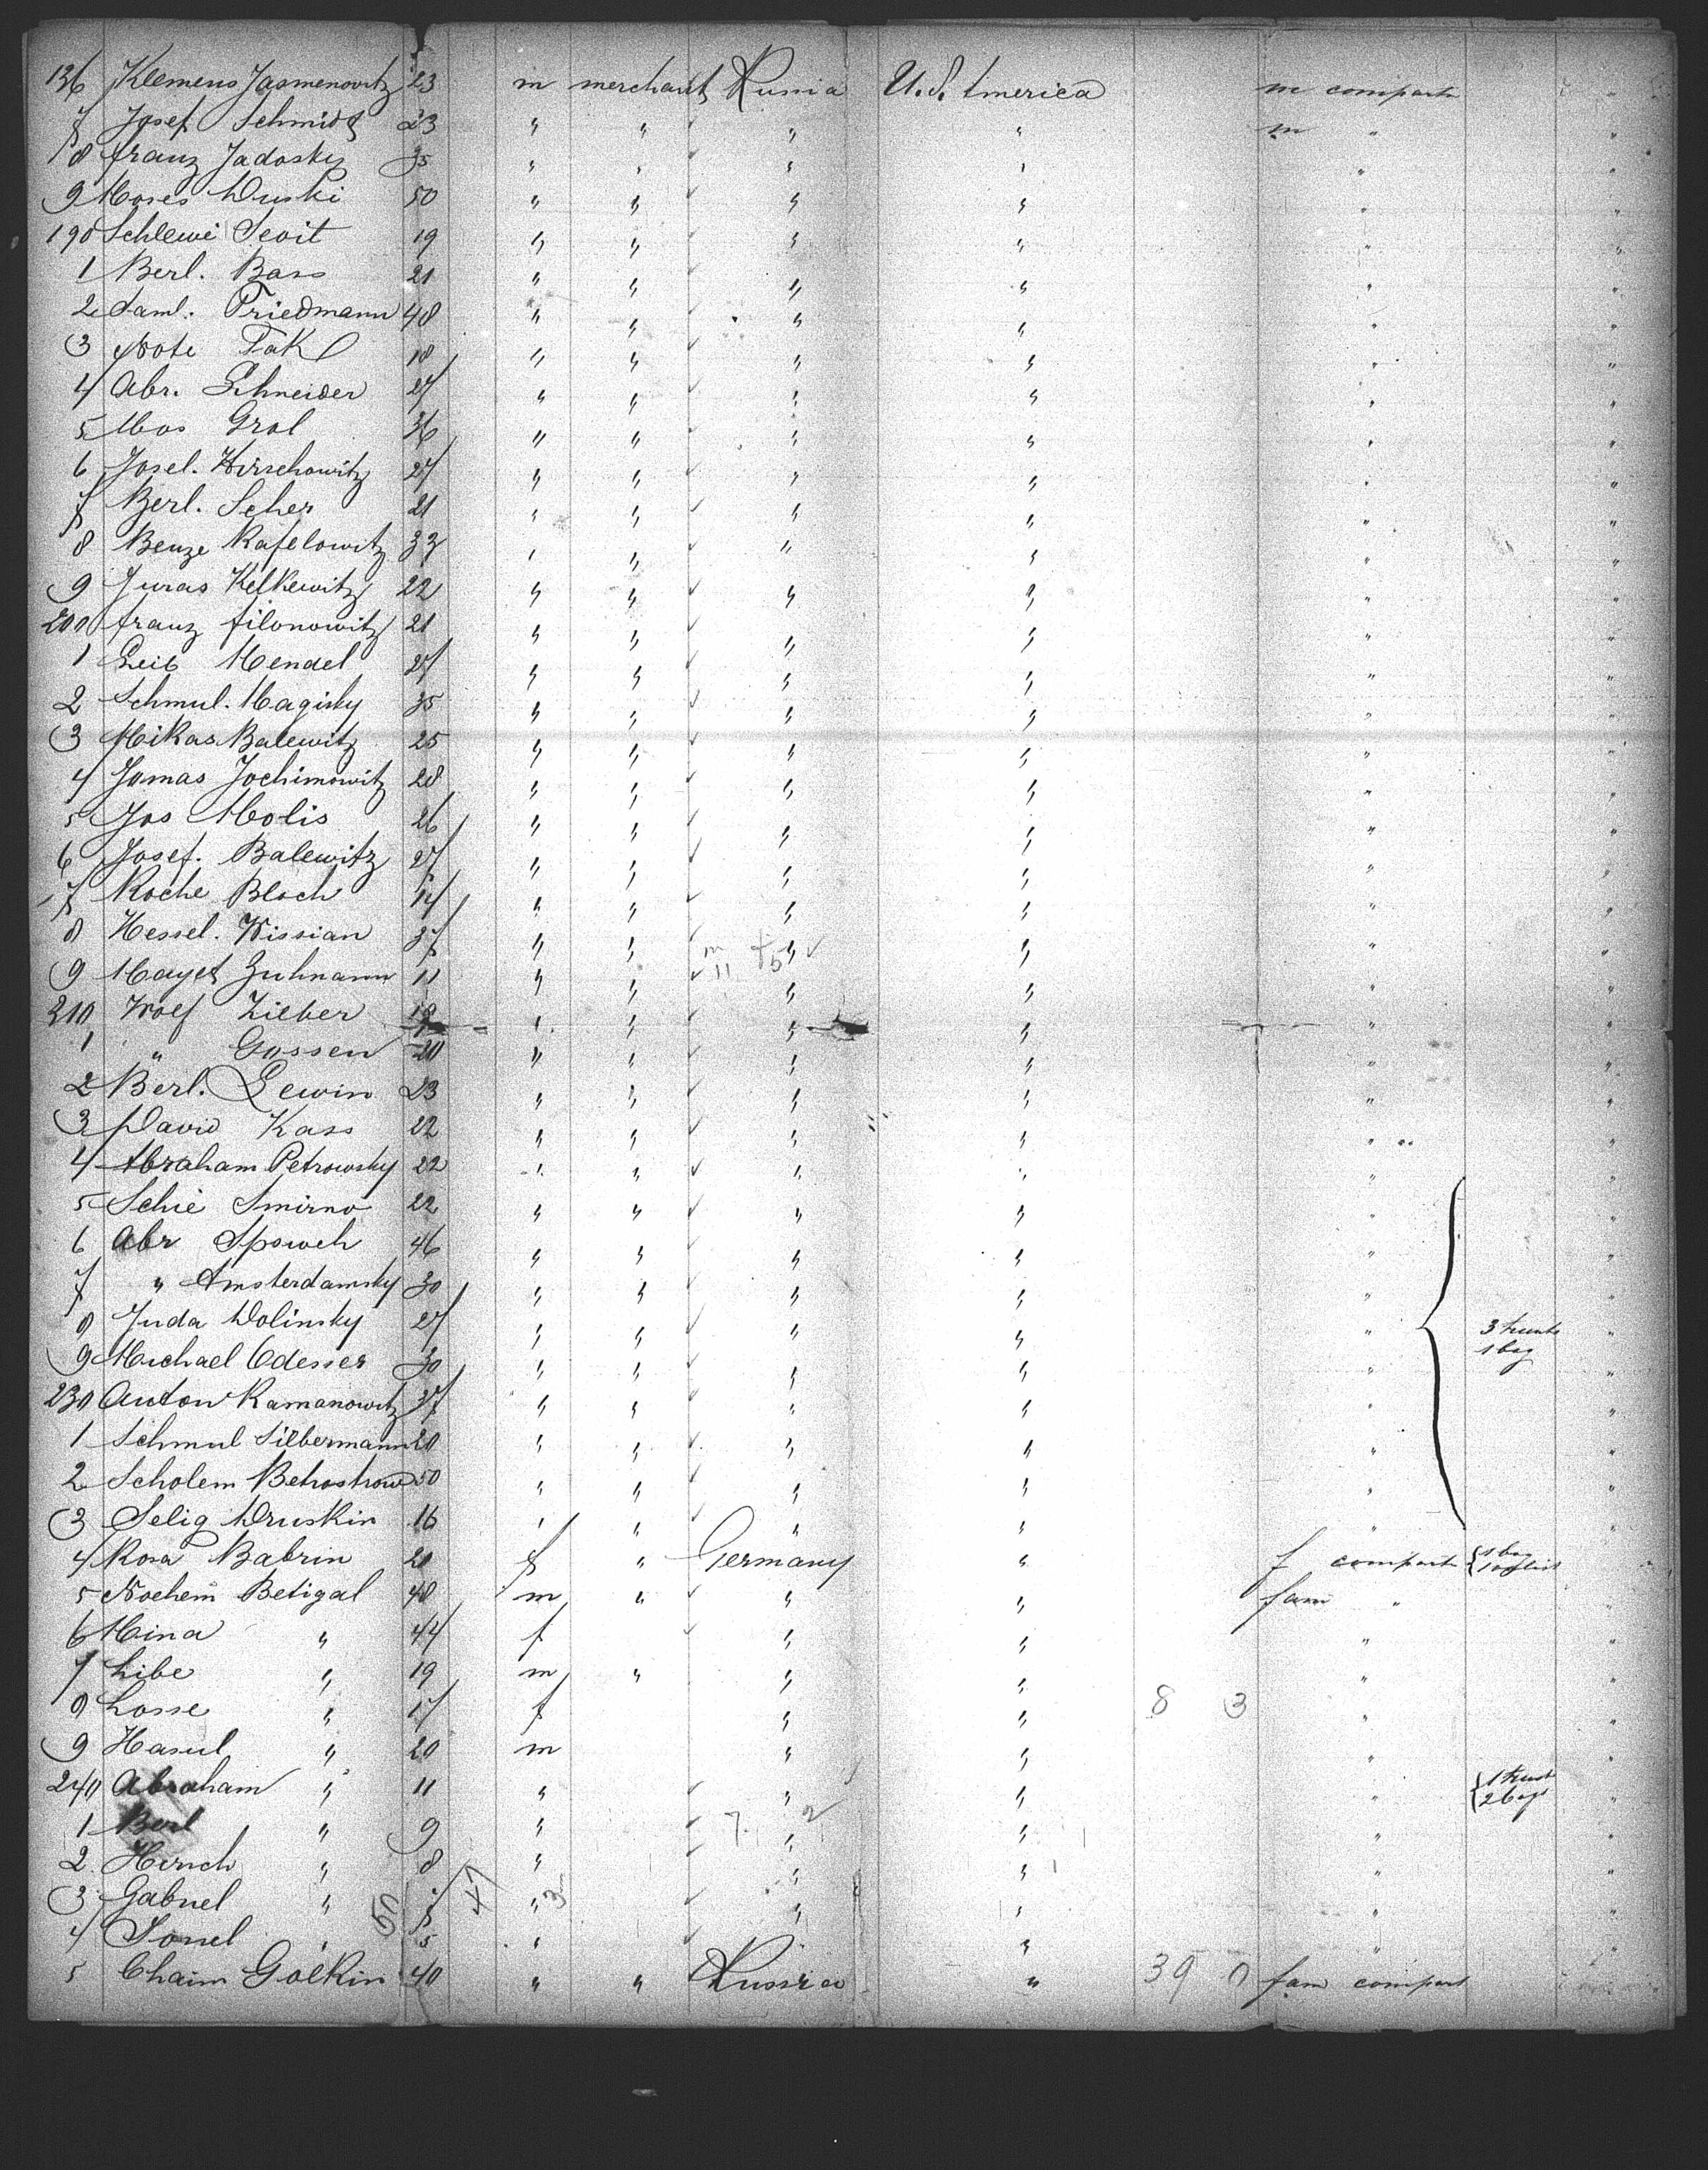 136 Klemens Jasmenowitz 23 m merchant Russia U.S. America m compart
7 Josef Schmidt 23 " " " " m " "
8 Franz Jadosky 35 " " " " " "
9 Moses Duski 50 " " " " " "
190 Schlewi Sevit 19 " " " " " "
1 Berl. Bass 21 " " " " " "
2 Saml. Friedmann 48 " " " " " "
3 Note Tak 18 " " " " " "
4 Abr. Schneider 27 " " " " " "
5 Mos Grol 36 " " " " " "
6 Josel. Hirschowitz 27 " " " " " "
7 Berl. Scher 21 " " " " " "
8 Benze Rafelowitz 33 " " " " " "
9 Juras Kelkewitz 22 " " " " " "
200 Franz Filonowitz 21 " " " " " "
1 Leib Mendel 27 " " " " " "
2 Schmul. Magisky 35 " " " " " "
3 Mikas Balewitz 25 " " " " " "
4 Jomas Jochimowitz 28 " " " " " "
5 Jos Molis 26 " " " " " "
6 Josef. Balewitz 27 " " " " " "
7 Roche Bloch 14 " " " " " "
8 Hessel. Wissian 37 " " " " " "
9 Mayet Zuhmann 11 " " " " " "
210 Wolf Zieber 18 " " " " " "
1 " Gossen 20 " " " " " "
2 Berl. Lewin 23 " " " " " "
3 David Kass 22 " " " " " "
4 Abraham Petrowsky 22 " " " " " "
5 Schie Smirno 22 " " " " " "
6 Abr Sposweh 46 " " " " " "
7 " Amsterdamsky 30 " " " " " "
8 Juda Wolinsky 27 " " " " " 3 trunks "
9 Michael Odesser 30 " " " " " 1 bag "
230 Anton Ramanowitz 37 " " " " " "
1 Schmul Silbermann 20 " " " " " "
2 Scholem Betrostrow 50 " " " " " "
3 Selig Druskin 16 " " " " " "
4 Rosa Babrin 20 f " Germany " f compart 1 bag "
5 Nochem Betigal 48 m " " " fam " "
6 Mina " 44 f " " " "
7 Libe " 19 m " " " " "
8 Losse " 17 f " " 8 3 " "
9 Hasul " 20 m " " " "
240 Abraham " 11 " " " " 1 trunk 2 bags "
1 Berl " 9 " 7 2 " " " "
2 Hirsch " 8 " " " " "
3 Gabriel " 7 " " " " "
4 Sonel " 5 " " " " "
5 Chaim Golkin 40 " " Russia " 39 0 fam compart